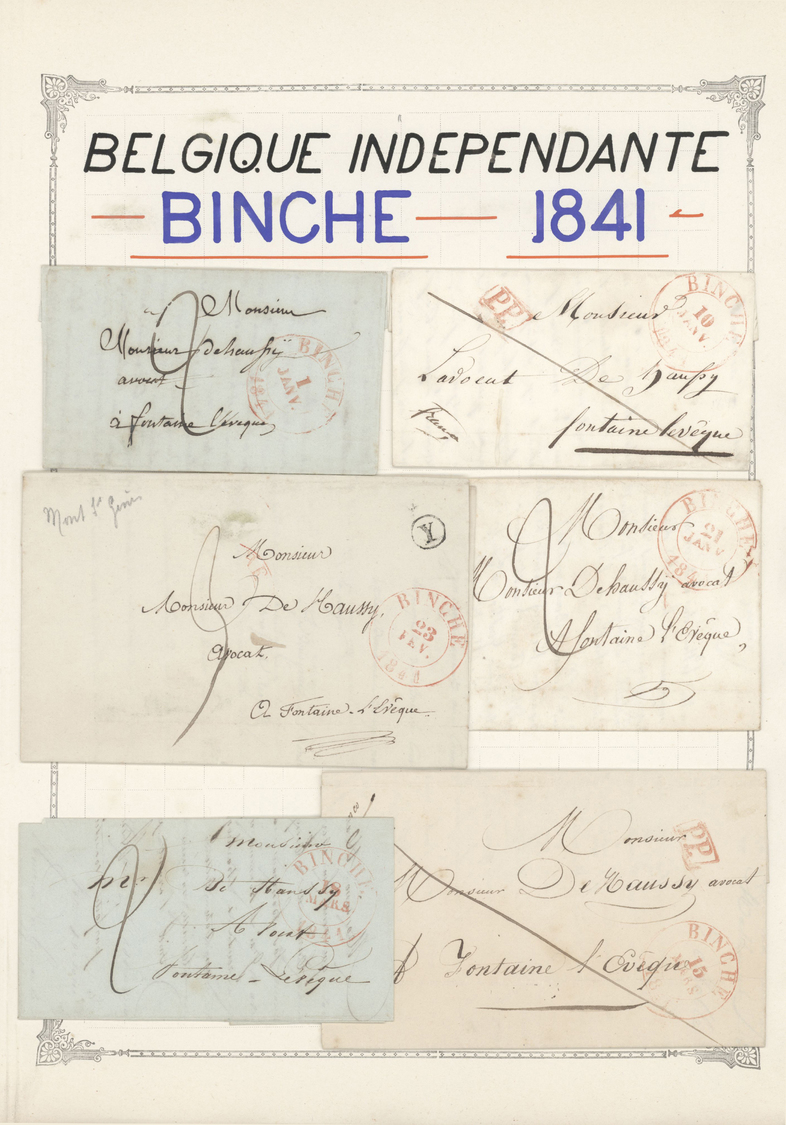 BELGIQUE INDEPENDANTE
— BINCHE — 1841 —
à Monsieur
Monsieur dehaussÿ
avocat
à fontaine l'éveque
BINCHE
1
JANV.
1841
P.P.
Monsieur
L'avocat De haussy
fontaine levêque
franco
BINCHE
10
JANV.
Mont St Genois
Y
Monsieur
Monsieur De Haussy,
Avocat,
A Fontaine-L'Evêque.
BINCHE
23
FEV.
1841
2
Monsieur
Monsieur Dehaussy avocat
A fontaine l'Evêque,
BINCHE
21
JANV
184
2
monsieur
De Haussy
Avocat
Fontaine-Levêque
BINCHE
MARS
P.P.
Monsieur
Monsieur De Haussy avocat
à Fontaine l'Evêque
BINCHE
15
MARS